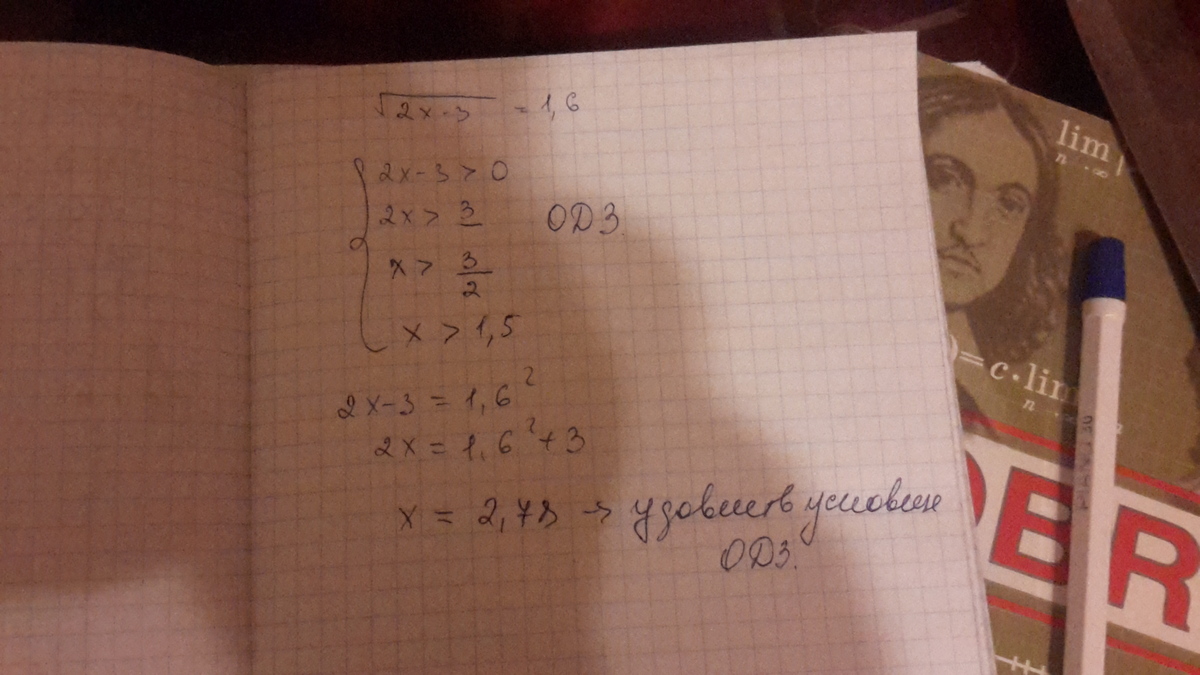 √2x-3 = 1,6
2x-3 > 0
2x > 3 ОДЗ.
x > 3/2
x > 1,5
2x-3 = 1,6²
2x = 1,6² + 3
x = 2,78 → удовлетв условие
ОДЗ.
lim
n→∞
)= c·lim
n→∞
OBR